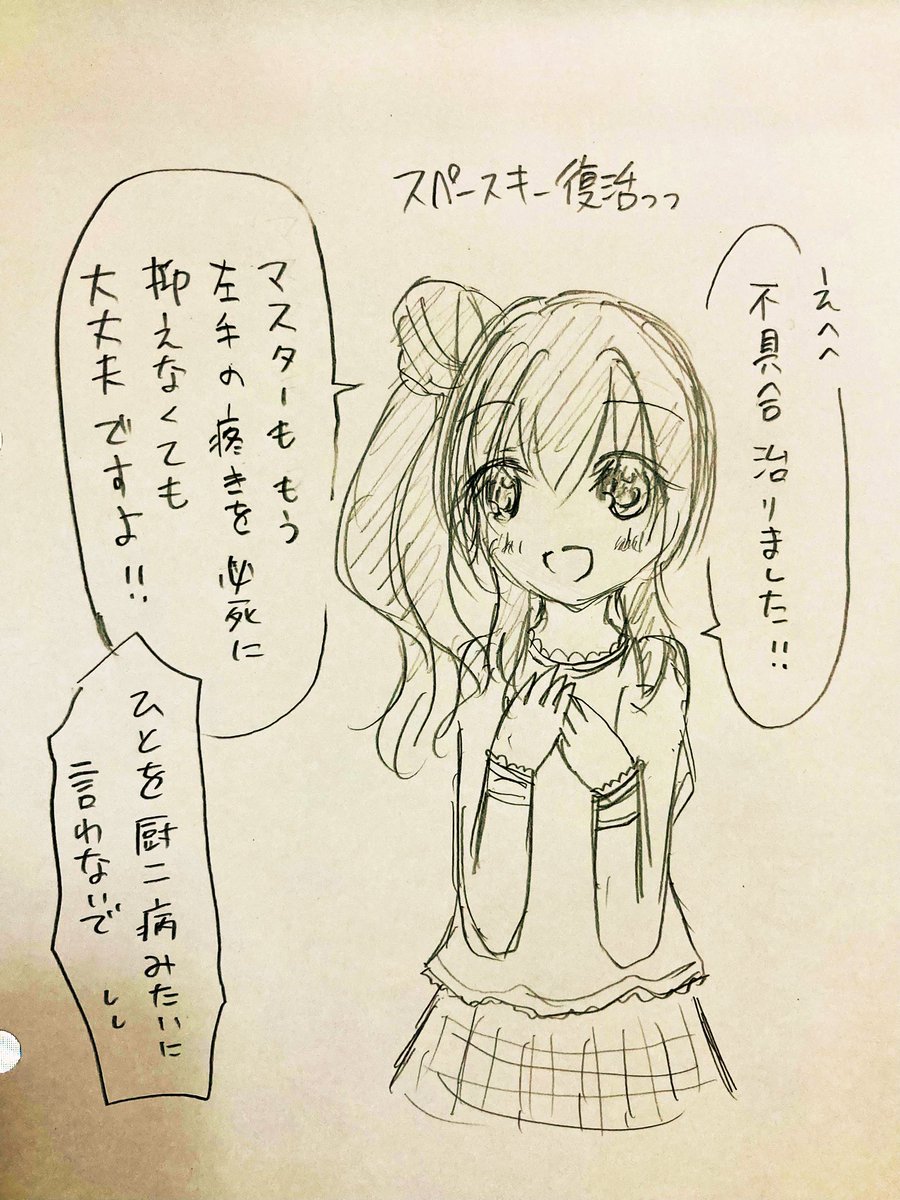 スペースキー復活っっ
えへへ
不具合治りました!!
マスターももう
左手の疼きを必死に
抑えなくても
大丈夫ですよ!!
ひとを厨二病みたいに
言わないで